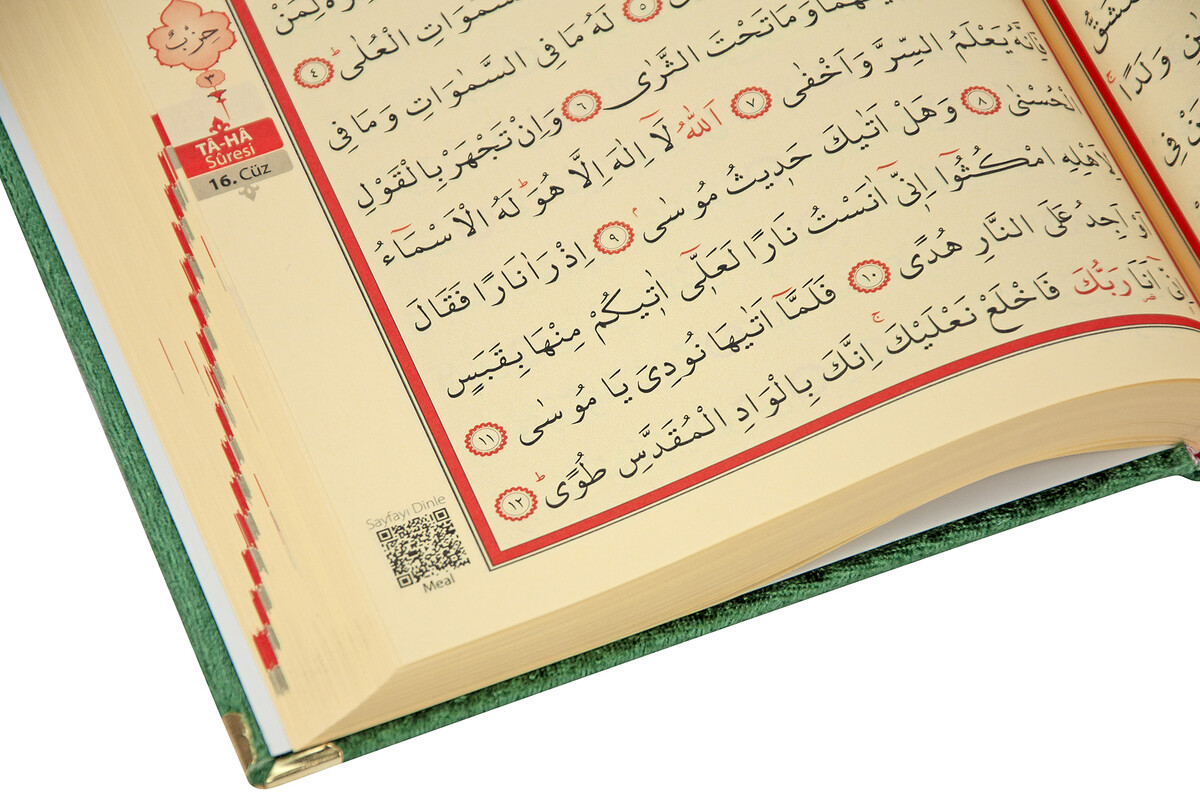 حزب
٣
TÂ-HÂ
Sûresi
16. Cüz
لِمَنْ
السَّمٰوَاتِ الْعُلٰى ٤
٥ لَهُ مَا فِى السَّمٰوَاتِ وَمَا فِى
وَمَا تَحْتَ الثَّرٰى ٦ وَاِنْ تَجْهَرْ بِالْقَوْلِ
فَاِنَّهُ يَعْلَمُ السِّرَّ وَاَخْفٰى ٧ اَللّٰهُ لَٓا اِلٰهَ اِلَّا هُوَۜ لَهُ الْاَسْمَٓاءُ
الْحُسْنٰى ٨ وَهَلْ اَتٰيكَ حَد۪يثُ مُوسٰىۢ ٩ اِذْ رَاٰ نَارًا فَقَالَ
لِاَهْلِهِ امْكُثُٓوا اِنّ۪ٓى اٰنَسْتُ نَارًا لَعَلّ۪ٓى اٰت۪يكُمْ مِنْهَا بِقَبَسٍ
اَوْ اَجِدُ عَلَى النَّارِ هُدًى ١٠ فَلَمَّٓا اَتٰيهَا نُودِىَ يَا مُوسٰى ١١
اِنّ۪ٓى اَنَا رَبُّكَ فَاخْلَعْ نَعْلَيْكَۚ اِنَّكَ بِالْوَادِ الْمُقَدَّسِ طُوًىۜ ١٢
Sayfayı Dinle
Meal
وَلَدًا
فِى